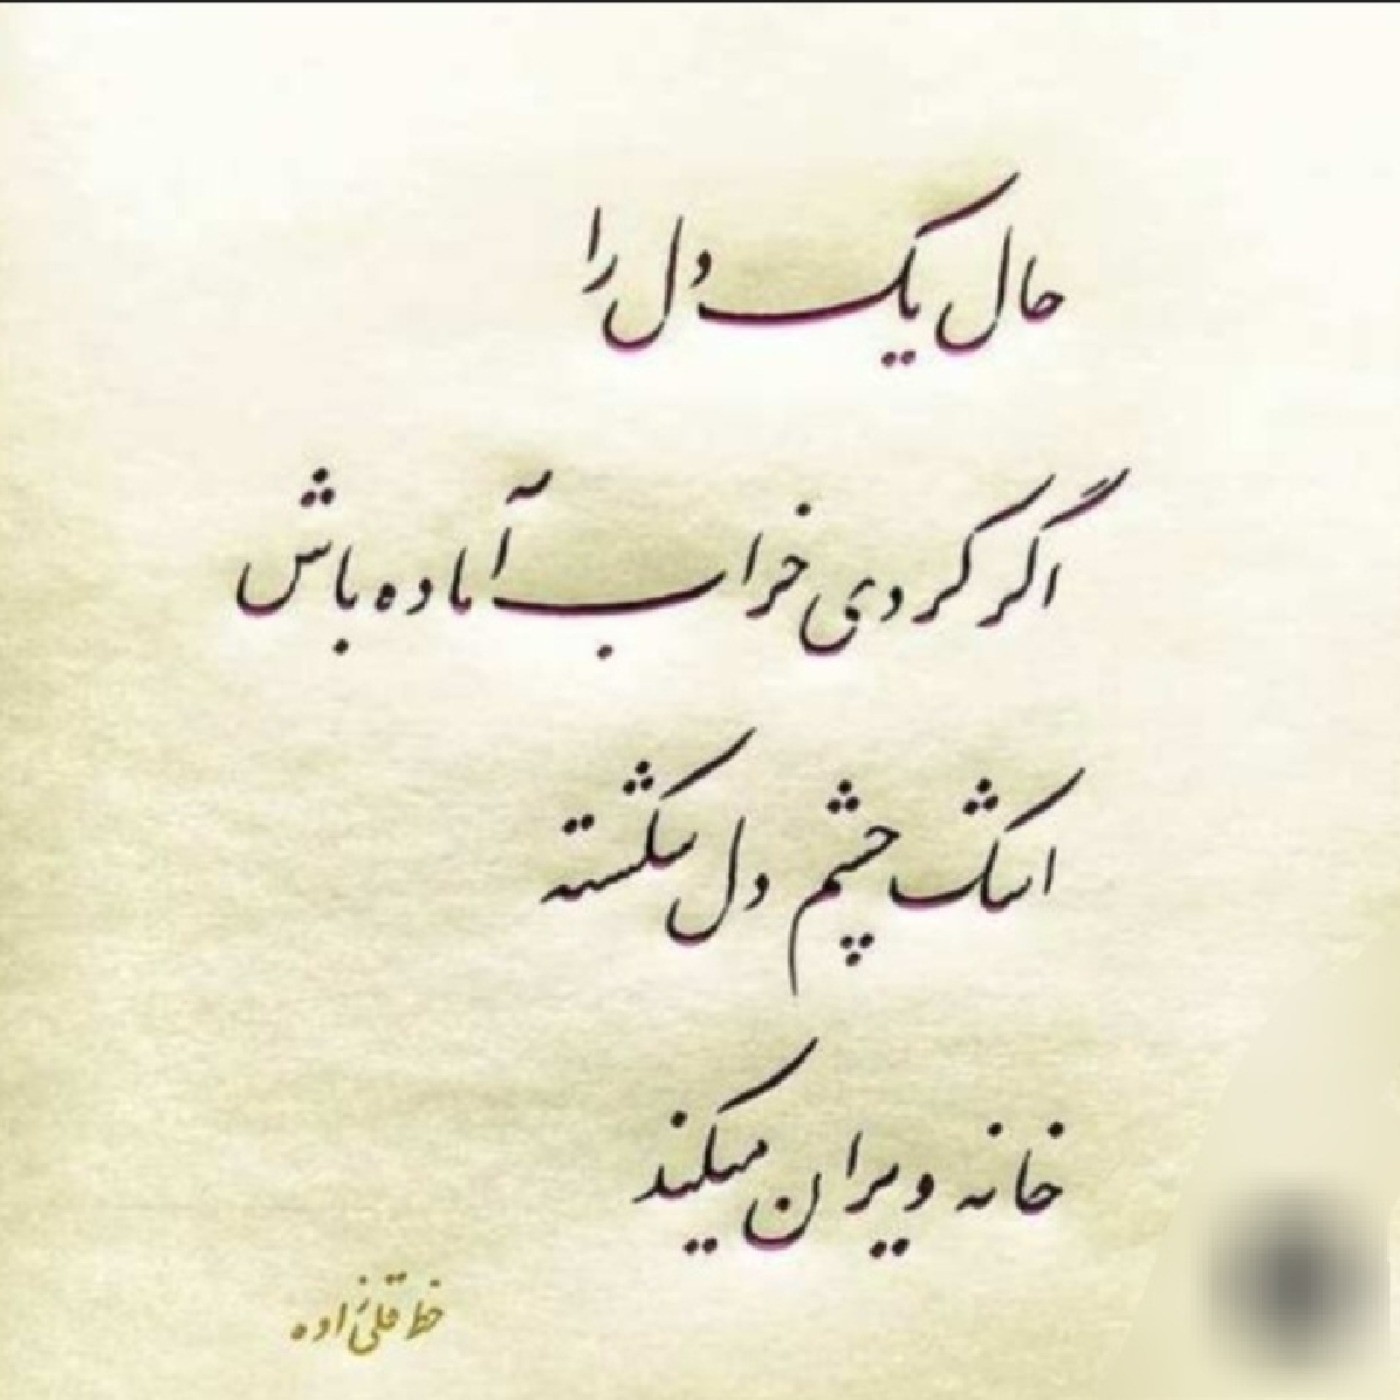 حال یک دل را
اگر کردی خراب آماده باش
اشک چشم دل شکسته
خانه ویران میکند
خط قلی زاده